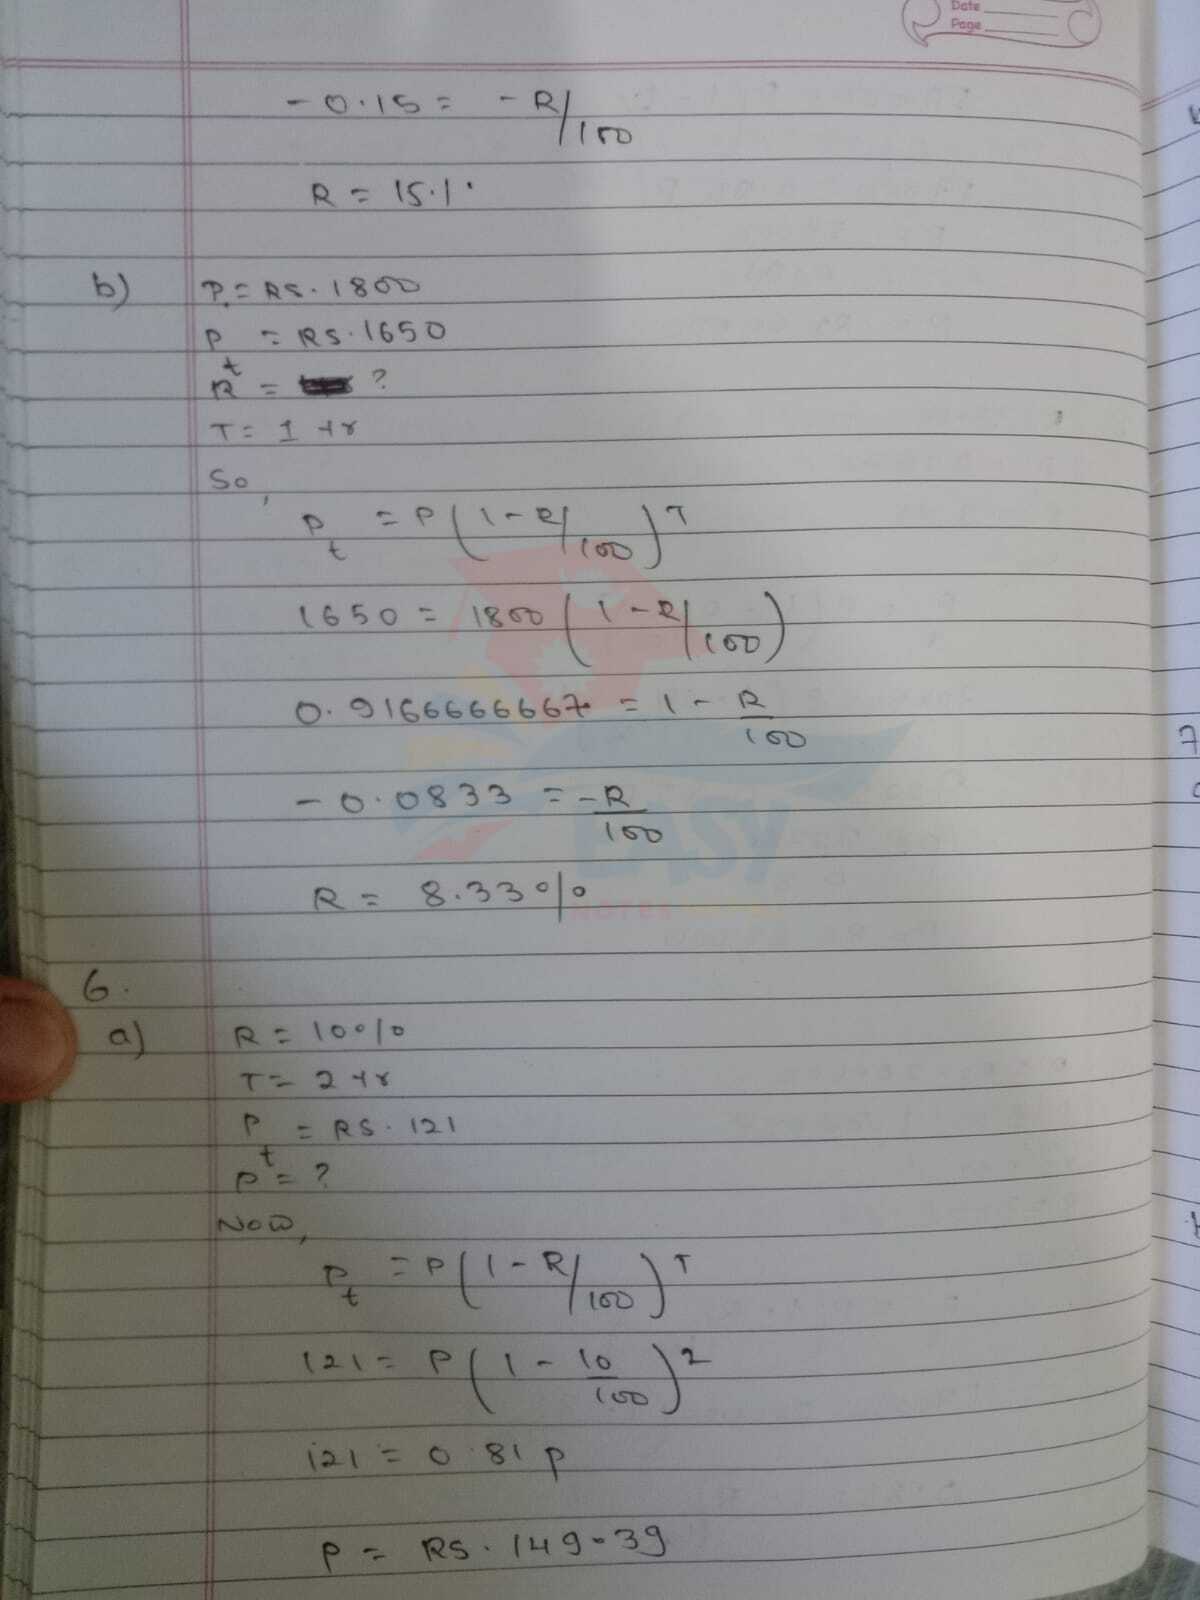 Date
Page
- 0.15 = - R/100
R = 15.1.
b) P = RS. 1800
Pt = RS. 1650
R = ?
T = 1 yr
So,
Pt = P(1 - R/100)^T
1650 = 1800(1 - R/100)
0.9166666667 = 1 - R/100
- 0.0833 = - R/100
R = 8.33%
6.
a) R = 10%
T = 2 yr
Pt = RS. 121
P = ?
Now,
Pt = P(1 - R/100)^T
121 = P(1 - 10/100)^2
121 = 0.81 P
P = RS. 149.39
EASY
NOTES